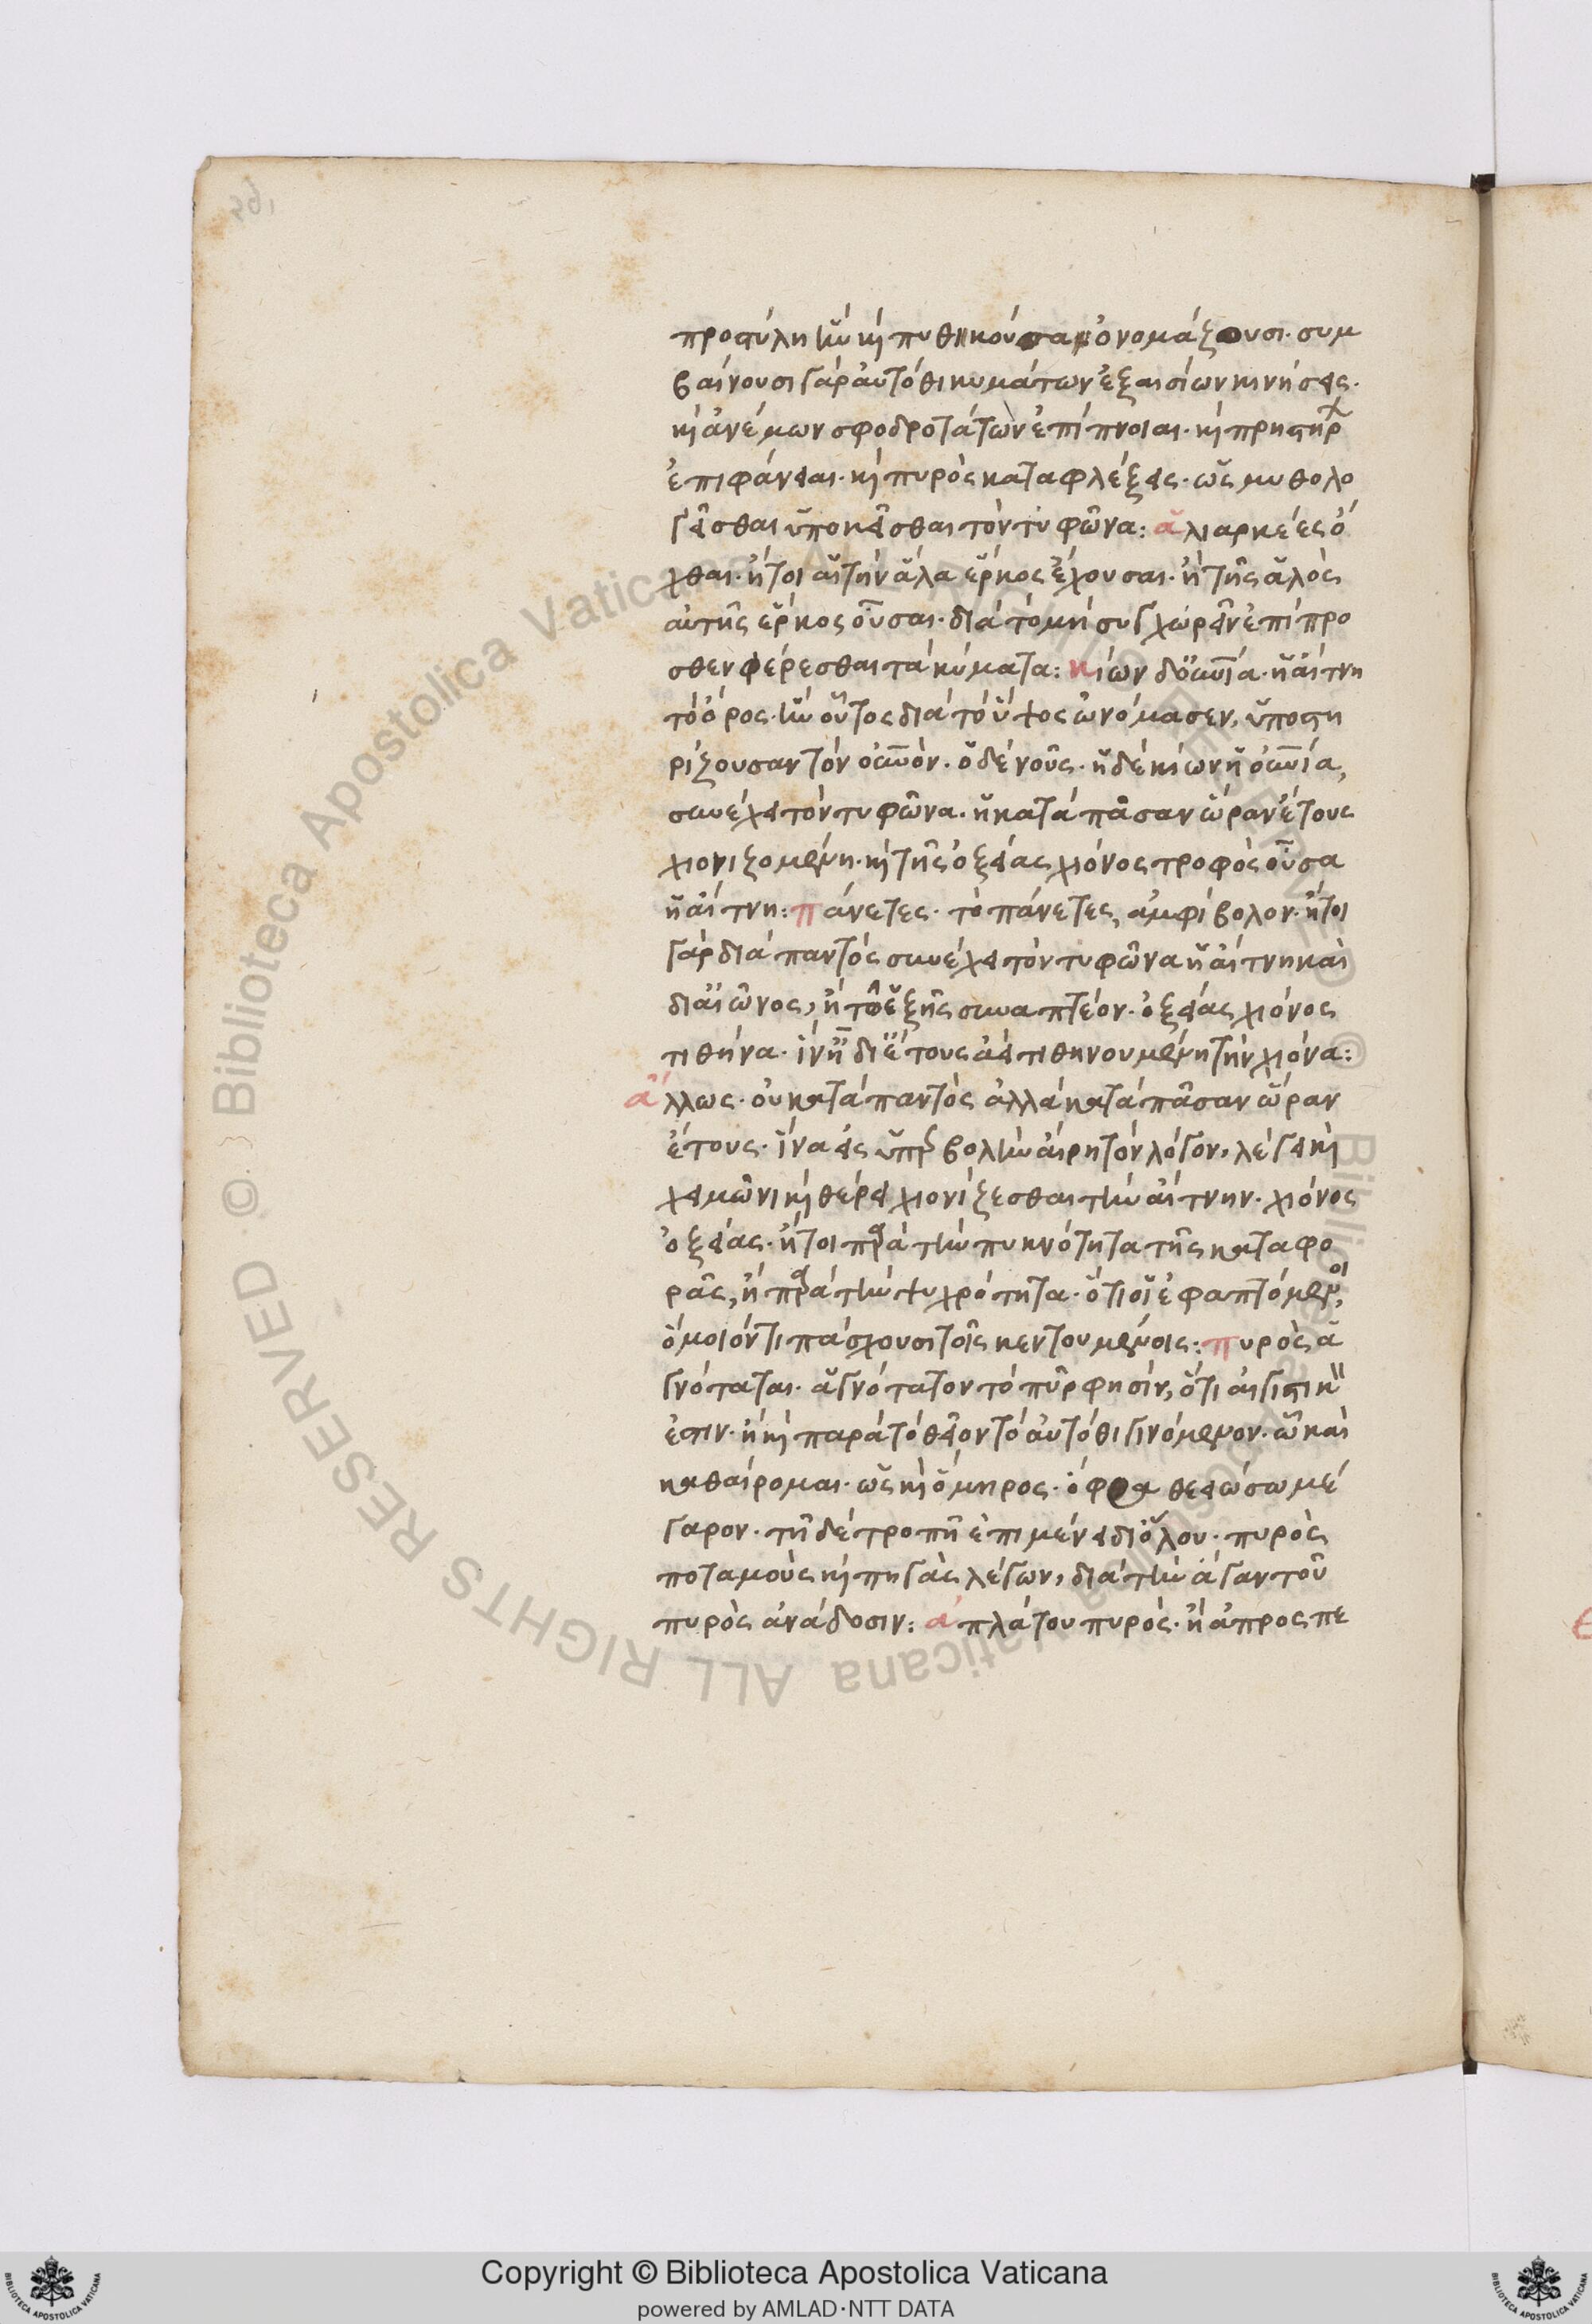 προστύλη ἣν κὶ πυθηκούσας ὀνομάζουσι· συμ
βαίνουσι γὰρ αὐτόθι κυμάτων ἐξαισίων κινήσεις·
κὶ ἀνέμων σφοδροτάτων ἐπίπνοιαι· κὶ πρηστήρ
ἐπιφάνειαι· κὶ πυρὸς καταφλέξεις· ὡς μυθολο
γεῖσθαι ὑποκεῖσθαι τὸν τυφῶνα: ἁλιερκέες ὄ
χθαι· ἤτοι αἱ τὴν ἅλα ἕρκος ἔχουσαι· ἢ τῆς ἁλὸς
αὐτῆς ἕρκος οὖσαι· διὰ τὸ μὴ συγχωρεῖν ἐπίπρο
σθεν φέρεσθαι τὰ κύματα: κίων δ' οὐνία· ἡ αἴτνη
τὸ ὄρος· ἣν οὕτος διὰ τὸ ὕψος ὠνόμασεν, ὑποστη
ρίζουσαν τὸν οὐνόν· ὁ δὲ νοῦς· ἡ δὲ κίων ἡ οὐνία,
συνέχει τὸν τυφῶνα· ἡ κατὰ πᾶσαν ὥραν ἔτους
χιονιζομένη· κὶ τῆς ὀξείας χιόνος τροφὸς οὖσα
ἡ αἴτνη: πάνετες· τὸ πάνετες, ἀμφίβολον· ἤτοι
γὰρ διὰ παντὸς συνέχει τὸν τυφῶνα ἡ αἴτνη καὶ
δι' αἰῶνος, ἢ τῶ ἑξῆς συναπτέον· ὀξείας χιόνος
τιθήνα· ἵν' ᾖ δι' ἔτους ἀεὶ τιθηνουμένη τὴν χιόνα:
ἄλλως· οὐ κατὰ παντὸς ἀλλὰ κατὰ πᾶσαν ὥραν
ἔτους· ἵνα εἰς ὑπερβολὴν αἴρη τὸν λόγον, λέγει κὶ
χειμῶνι κὶ θέρει χιονίζεσθαι τὴν αἴτνην· χιόνος
ὀξείας· ἤτοι παρὰ τὴν πυκνότητα τῆς καταφο
ρᾶς, ἢ παρὰ τὴν ψυχρότητα· ὅτι οἱ ἐφαπτόμενοι,
ὅμοιόν τι πάσχουσι τοῖς κεντουμένοις: πυρὸς ἁ
γνόταται· ἁγνότατον τὸ πῦρ φησὶν, ὅτι ἁγιστικὴ
ἐστιν· ἢ κὶ παρὰ τὸ θεῖον τὸ αὐτόθι γινόμενον· ᾧ καὶ
καθαίρομαι· ὡς κὶ ὅμηρος· ὄφρα θεειώσω μέ
γαρον· τῆ δὲ τροπῆ ἐπιμένει διόλου· πυρὸς
ποταμοὺς κὶ πηγὰς λέγων, διὰ τὴν ἄγαν τοῦ
πυρὸς ἀνάδοσιν: ἀπλάτου πυρός· ἢ ἀπροσπε
Copyright © Biblioteca Apostolica Vaticana
powered by AMLAD·NTT DATA